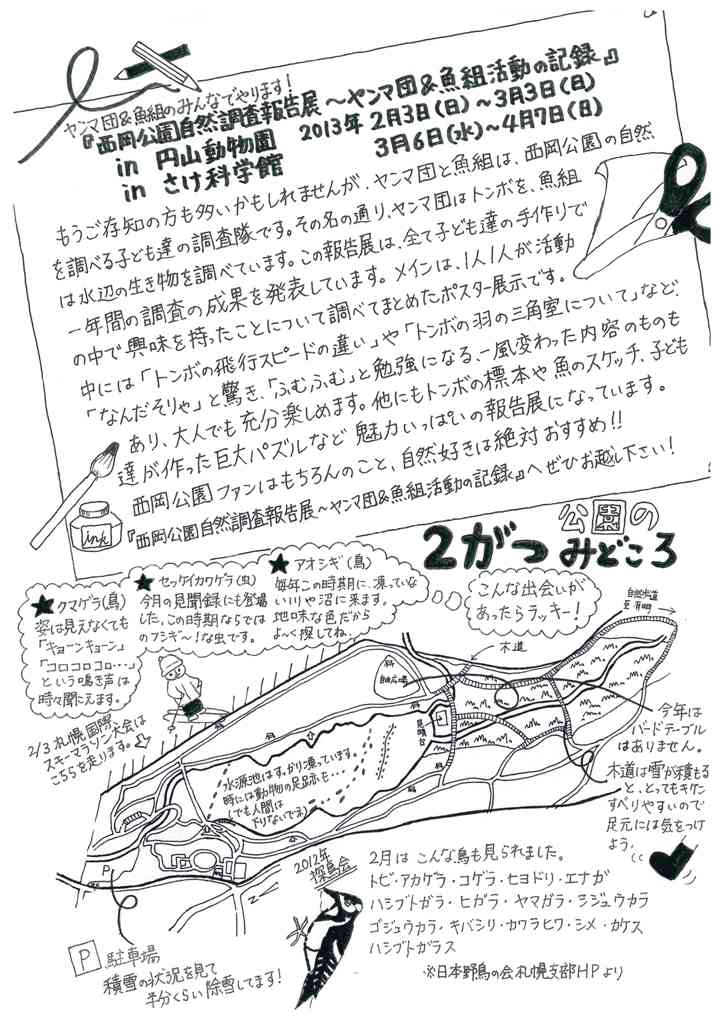 ヤンマ団&魚組のみんなでやります!
『西岡公園自然調査報告展～ヤンマ団&魚組活動の記録』
in 円山動物園 2013年 2月3日(日)～3月3日(日)
in さけ科学館 3月6日(水)～4月7日(日)
もうご存知の方も多いかもしれませんが、ヤンマ団と魚組は、西岡公園の自然
を調べる子ども達の調査隊です。その名の通り、ヤンマ団はトンボを、魚組
は水辺の生き物を調べています。この報告展は、全て子ども達の手作りで
一年間の調査の成果を発表しています。メインは、1人1人が活動
の中で興味を持ったことについて調べてまとめたポスター展示です。
中には「トンボの飛行スピードの違い」や「トンボの羽の三角室について」など、
「なんだそりゃ」と驚き、「ふむふむ」と勉強になる、一風変わった内容のものも
あり、大人でも充分楽しめます。他にもトンボの標本や魚のスケッチ、子ども
達が作った巨大パズルなど魅力いっぱいの報告展になっています。
西岡公園ファンはもちろんのこと、自然好きは絶対おすすめ!!
『西岡公園自然調査報告展～ヤンマ団&魚組活動の記録』へぜひお越し下さい!
ink
公園の
2がつ みどころ
★クマゲラ(鳥)
姿は見えなくても
「キョーンキョーン」
「コロコロコロ…」
という鳴き声は
時々聞こえます。
★セッケイカワゲラ(虫)
今月の見聞録にも登場
した、この時期ならでは
のフシギ～!な虫です。
★アオシギ(鳥)
毎年この時期に、凍っていな
い川や沼に来ます。
地味な色だから
よ～く探してね。
こんな出会いが
あったらラッキー!
自然歩道
至
木道
自由広場
見晴台
今年は
バードテーブル
はありません。
2/3札幌国際
スキーマラソン大会は
こちらを走ります。
水源池はすっかり凍っています。
時には動物の足跡も…
(でも人間は
下りないでネ)
木道は雪が積もる
と、とってもキケン
すべりやすいので
足元には気をつけ
よう。
P
2012年
探鳥会
2月はこんな鳥も見られました。
トビ・アカゲラ・コゲラ・ヒヨドリ・エナガ
ハシブトガラ・ヒガラ・ヤマガラ・シジュウカラ
ゴジュウカラ・キバシリ・カワラヒワ・シメ・カケス
ハシブトガラス
※日本野鳥の会札幌支部HPより
P 駐車場
積雪の状況を見て
半分くらい除雪してます!